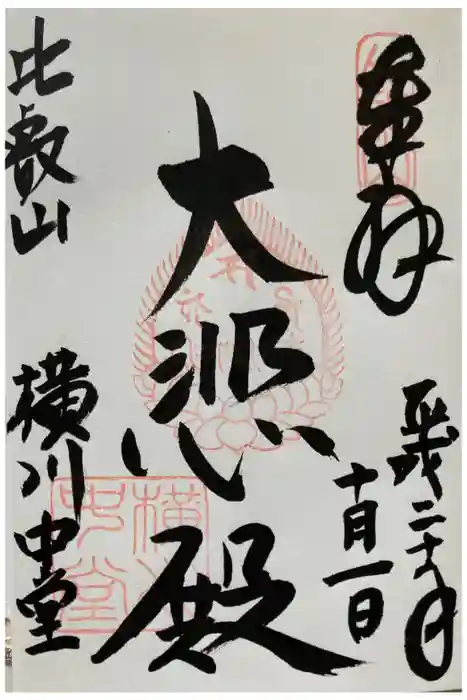 奉拝
平成二十六年
十月一日
大悲殿
比叡山
横川中堂
横川
中堂